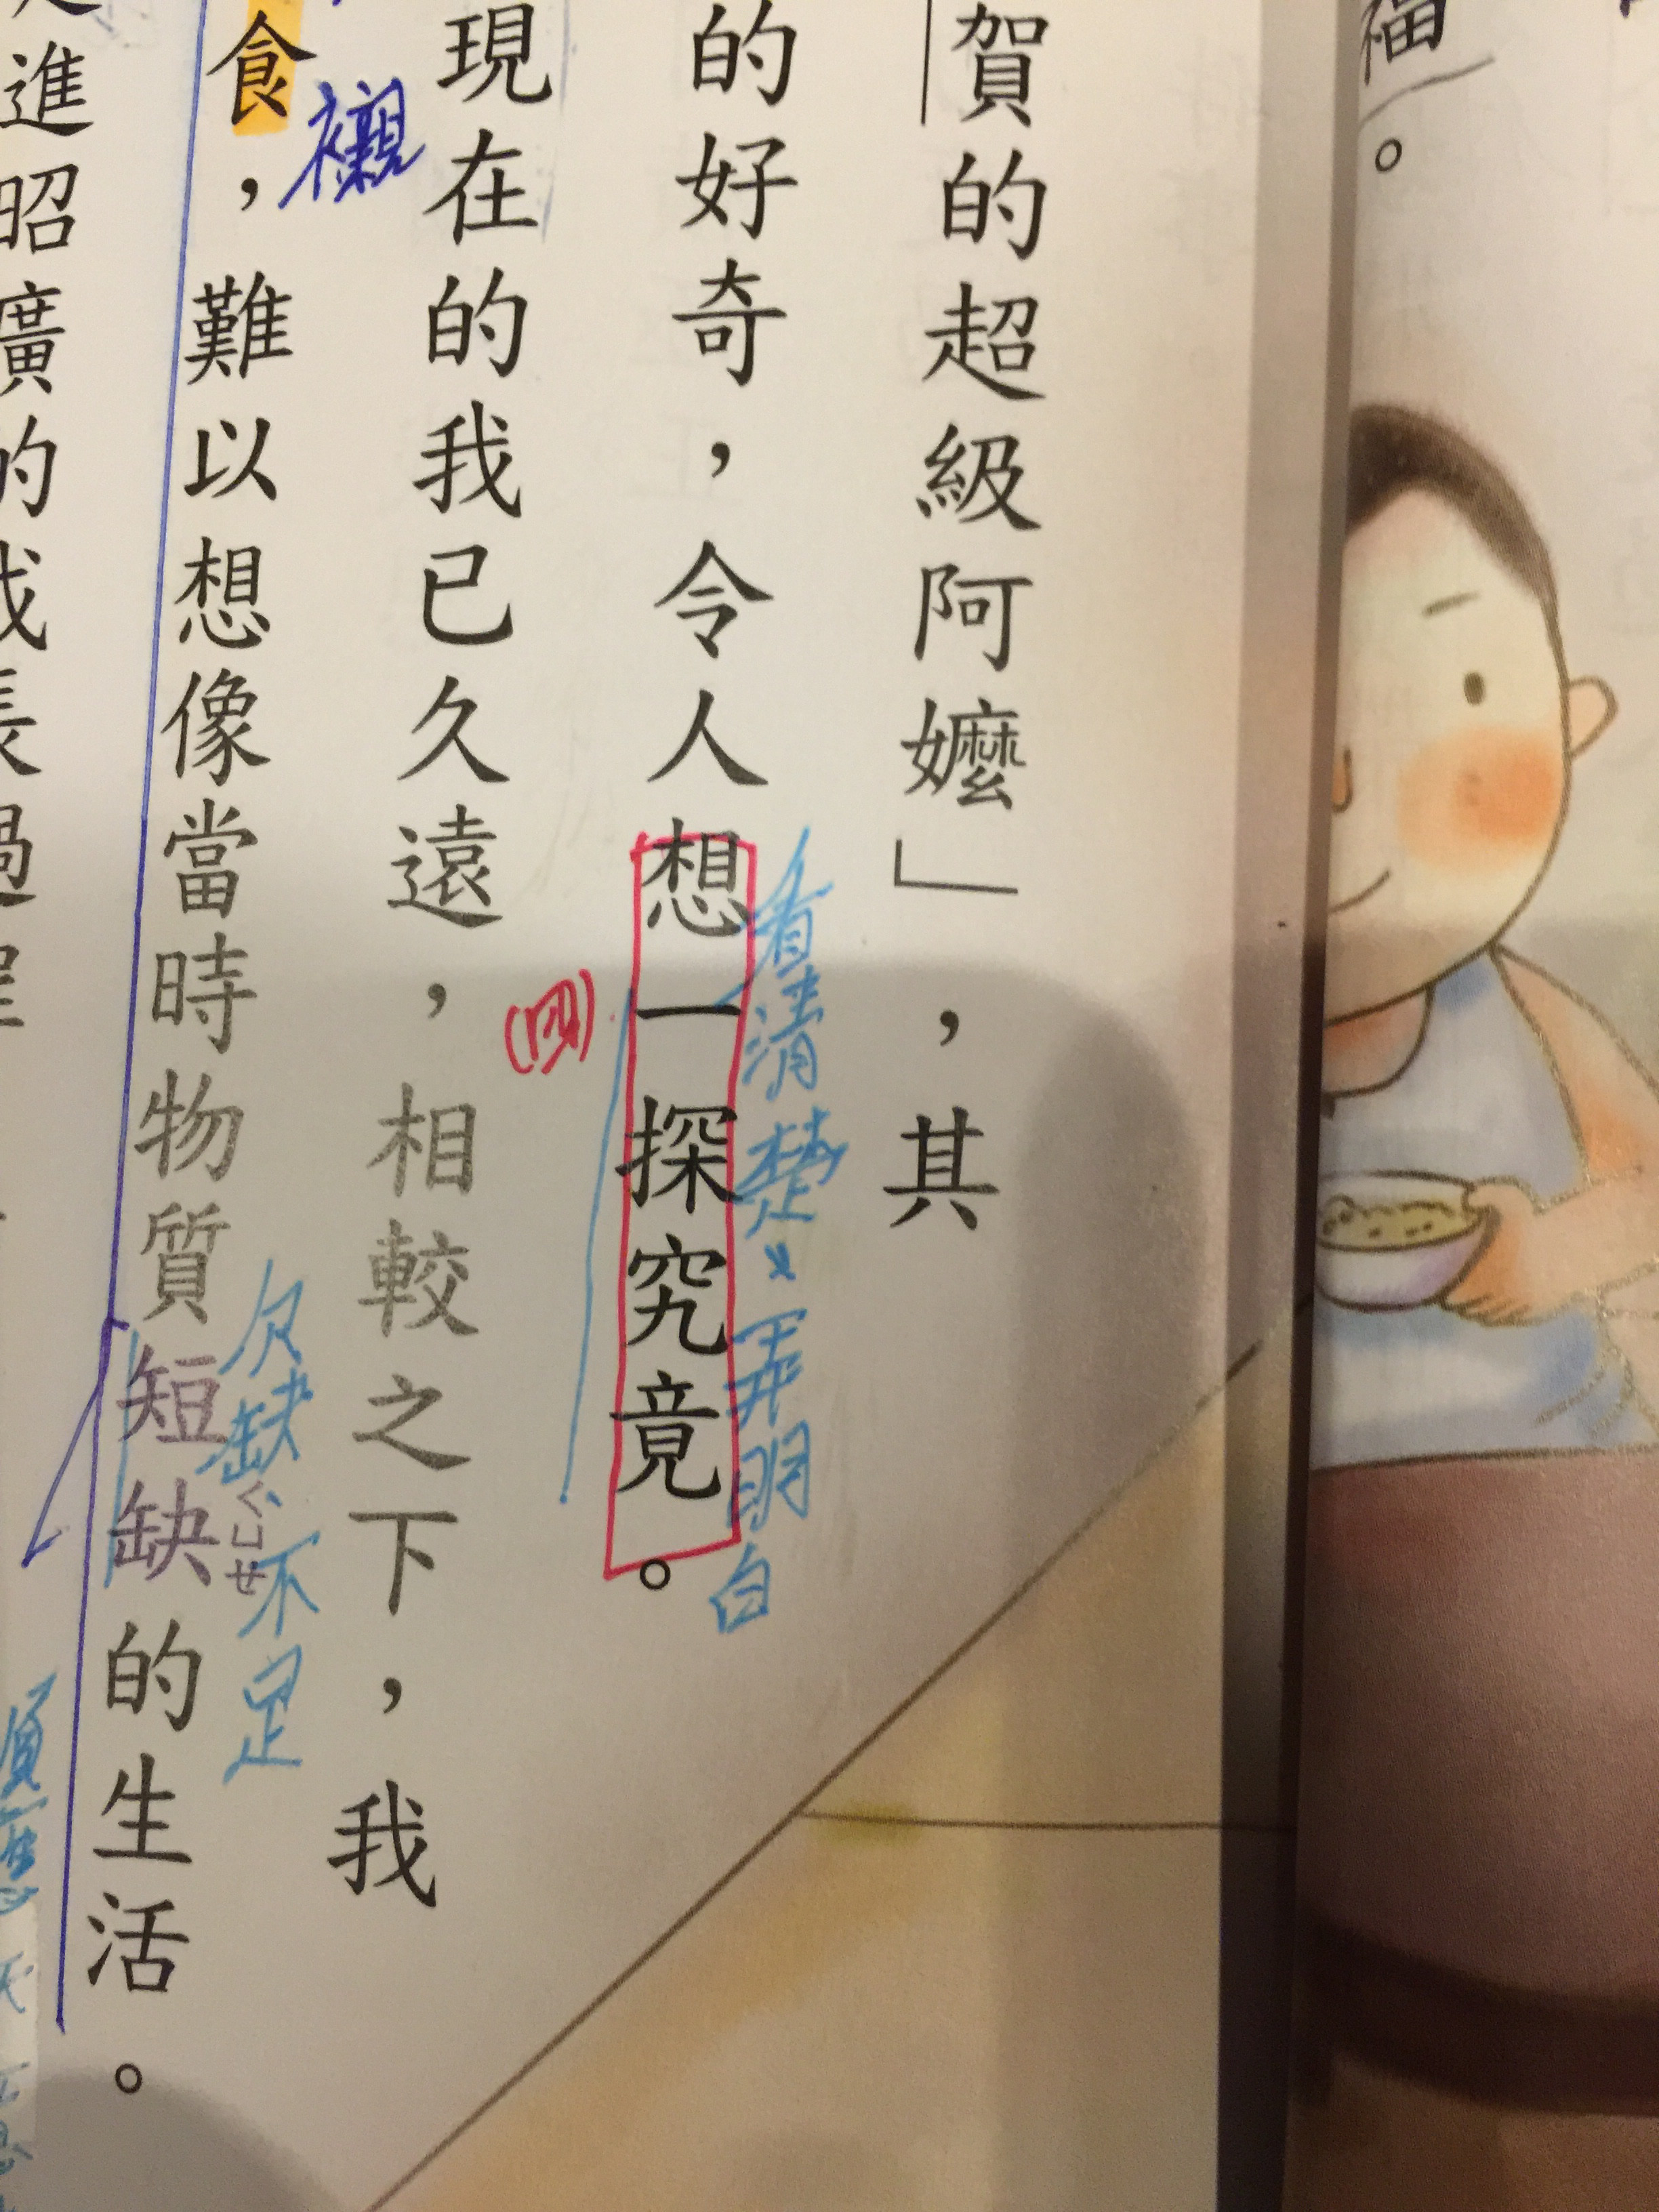 福。
賀的超級阿嬤」,其
看清楚、弄明白
的好奇,令人想一探究竟。
(四)
現在的我已久遠,相較之下,我
襯
欠缺、不足
ㄑㄩㄝ
食,難以想像當時物質短缺的生活。
進昭廣的成長過程